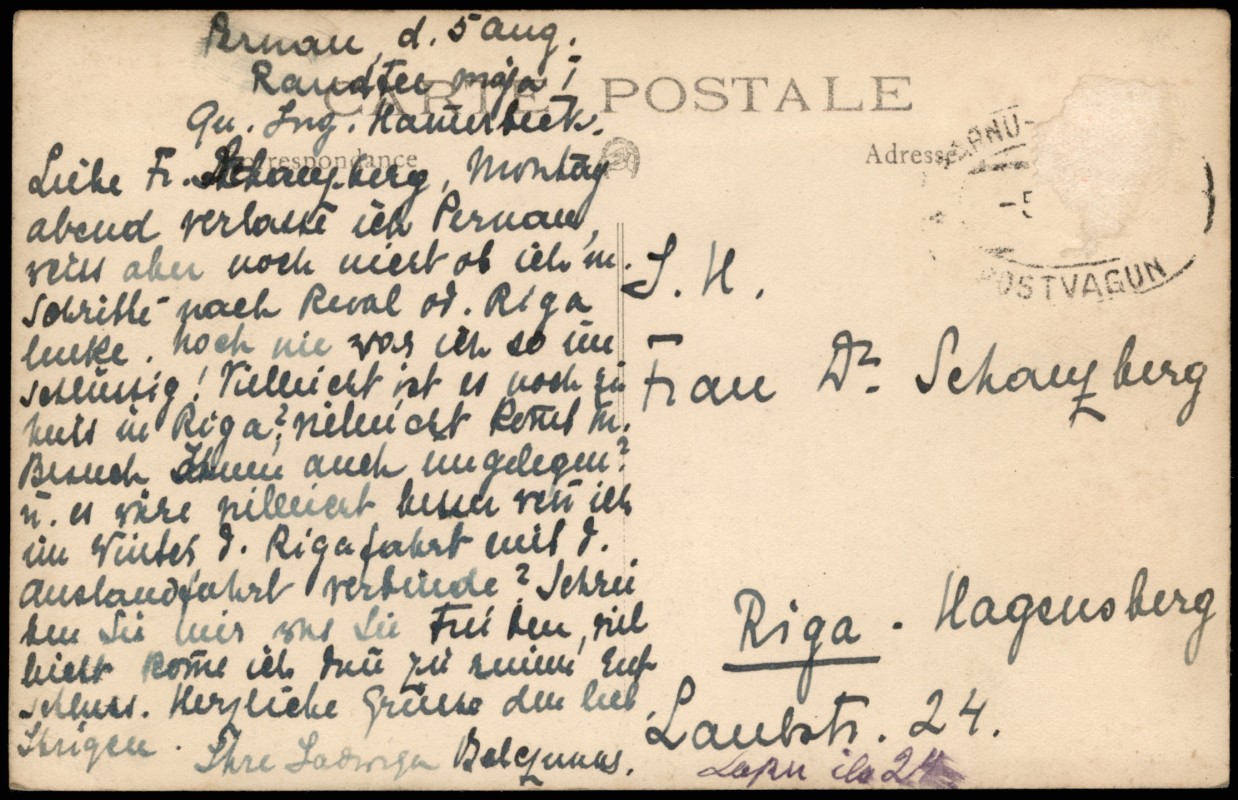 Pernau, d. 5 Aug.
Randtee maja I
Qu. Ing. Hamerbeck.
CARTE POSTALE
Correspondance
Adresse
Liebe Fr. Schanzberg, Montag
abend verlasse ich Pernau,
weiss aber noch nicht ob ich m.
Schritte nach Reval od. Riga
lenke. Noch nie war ich so un
schlüssig! Vielleicht ist es noch zu
heiss in Riga?, vielleicht kom̄t m.
Besuch Ihnen auch ungelegen?
u. es wäre vielleicht besser wen̄ ich
im Winter d. Rigafahrt mit d.
Auslandfahrt verbinde? Schrei
ben Sie mir was Sie
viel
leicht kom̄e ich dan̄ zu einem Ent
schluss. Herzliche Grüsse den lieb.
Ihrigen. Ihre Jadwiga
PERNU-
-5
POSTVAGUN
S. H.
Frau Dr. Schanzberg
Riga - Hagensberg
Laubstr. 24.
Lapu ila 24